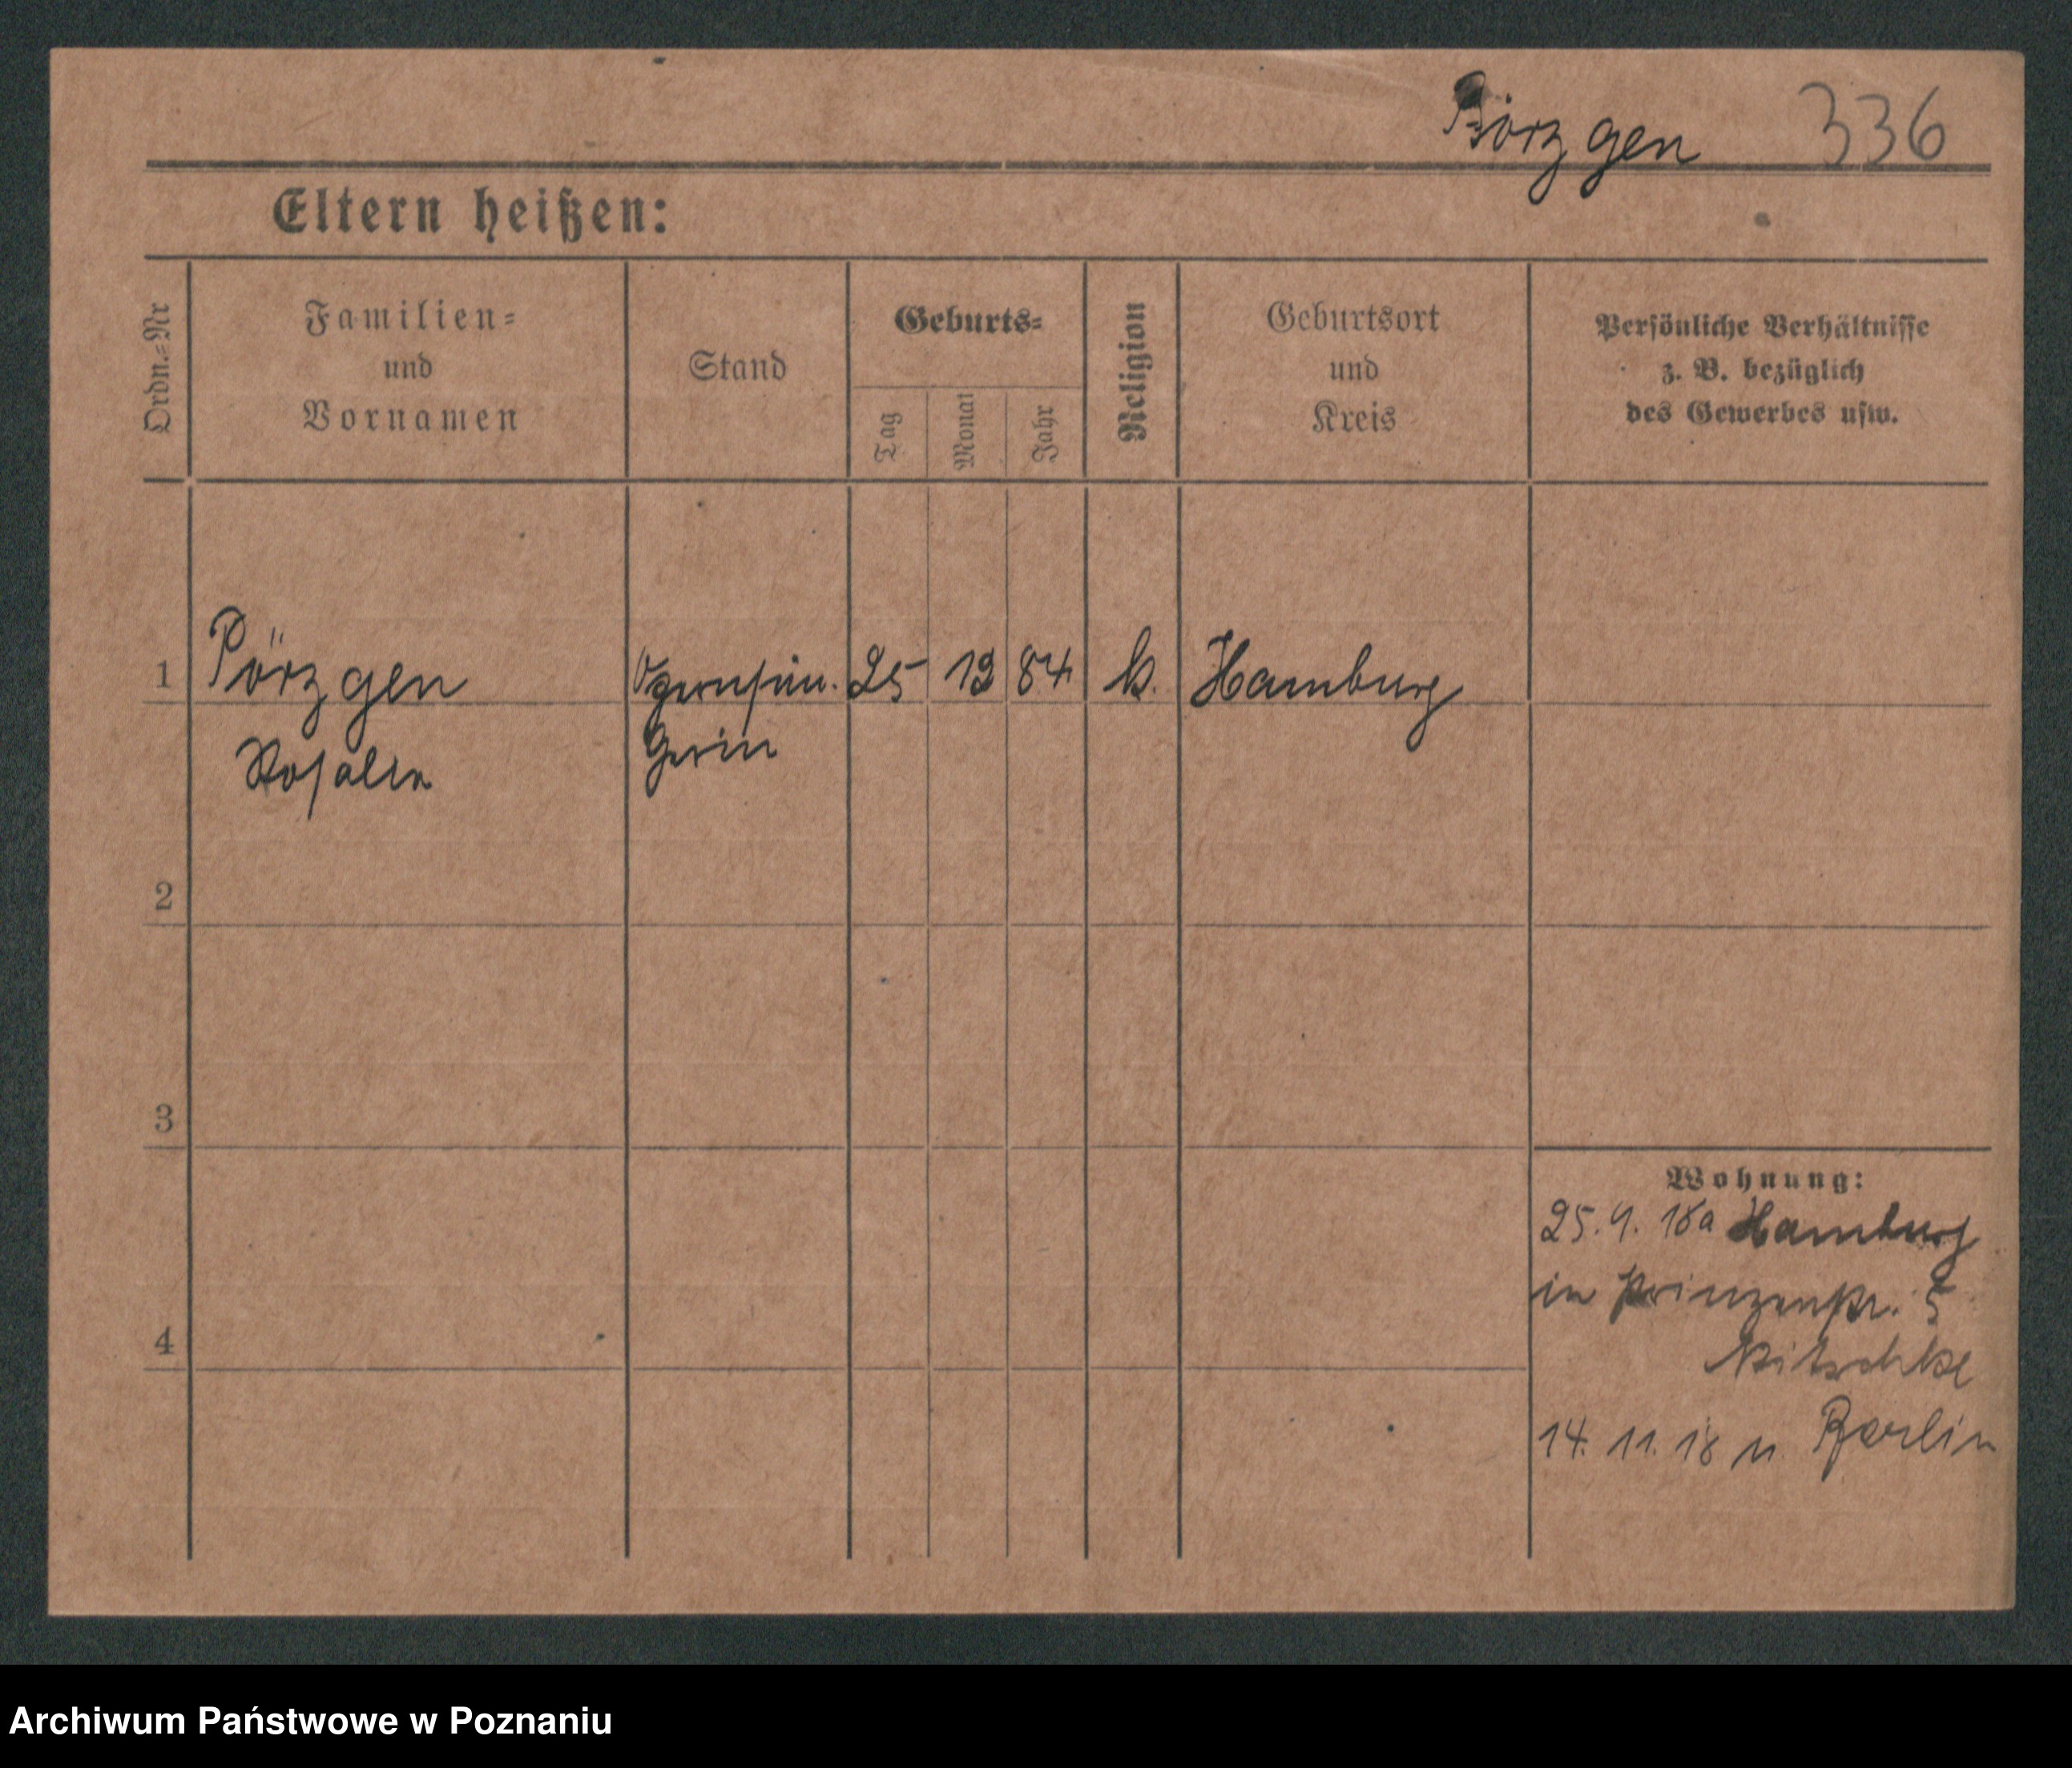 Pörzgen 336
Eltern heißen:
Ordn.=Nr
Familien=
und
Vornamen
Stand
Geburts=
Tag
Monat
Jahr
Religion
Geburtsort
und
Kreis
Persönliche Verhältnisse
z. B. bezüglich
des Gewerbes usw.
1 Pörzgen Opernsän. 25 12 84 k. Hamburg
Rosalie gerin
2
3
4
Wohnung:
25. 9. 18 a Hamburg
in Prinzenstr. 5
Nitschke
14. 11. 18 n. Berlin
Archiwum Państwowe w Poznaniu